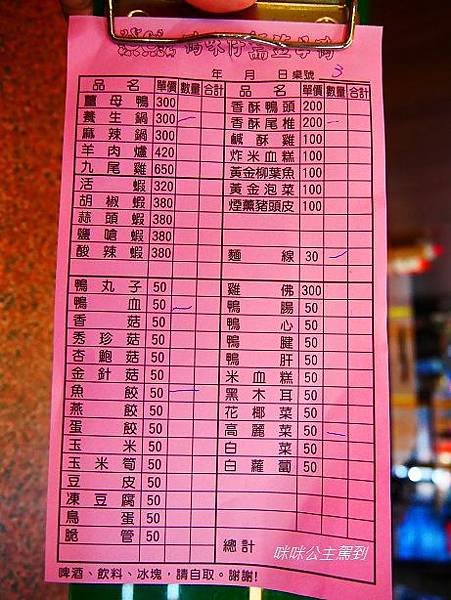 年 月 日 桌號 3
品名 單價 數量 合計 品名 單價 數量 合計
薑母鴨 300 香酥鴨頭 200
養生鍋 300 香酥尾椎 200
麻辣鍋 300 鹹酥雞 100
羊肉爐 420 炸米血糕 100
九尾雞 650 黃金柳葉魚 100
活蝦 320 黃金泡菜 100
胡椒蝦 380 煙薰豬頭皮 100
蒜頭蝦 380
鹽嗆蝦 380
酸辣蝦 380 麵線 30
鴨丸子 50 雞佛 300
鴨血 50 鴨腸 50
香菇 50 鴨心 50
秀珍菇 50 鴨腱 50
杏鮑菇 50 鴨肝 50
金針菇 50 米血糕 50
魚餃 50 黑木耳 50
燕餃 50 花椰菜 50
蛋餃 50 高麗菜 50
玉米 50 白菜 50
玉米筍 50 白蘿蔔 50
豆皮 50
凍豆腐 50
鳥蛋 50
脆管 50 總計
啤酒、飲料、冰塊，請自取。謝謝!
咪咪公主駕到